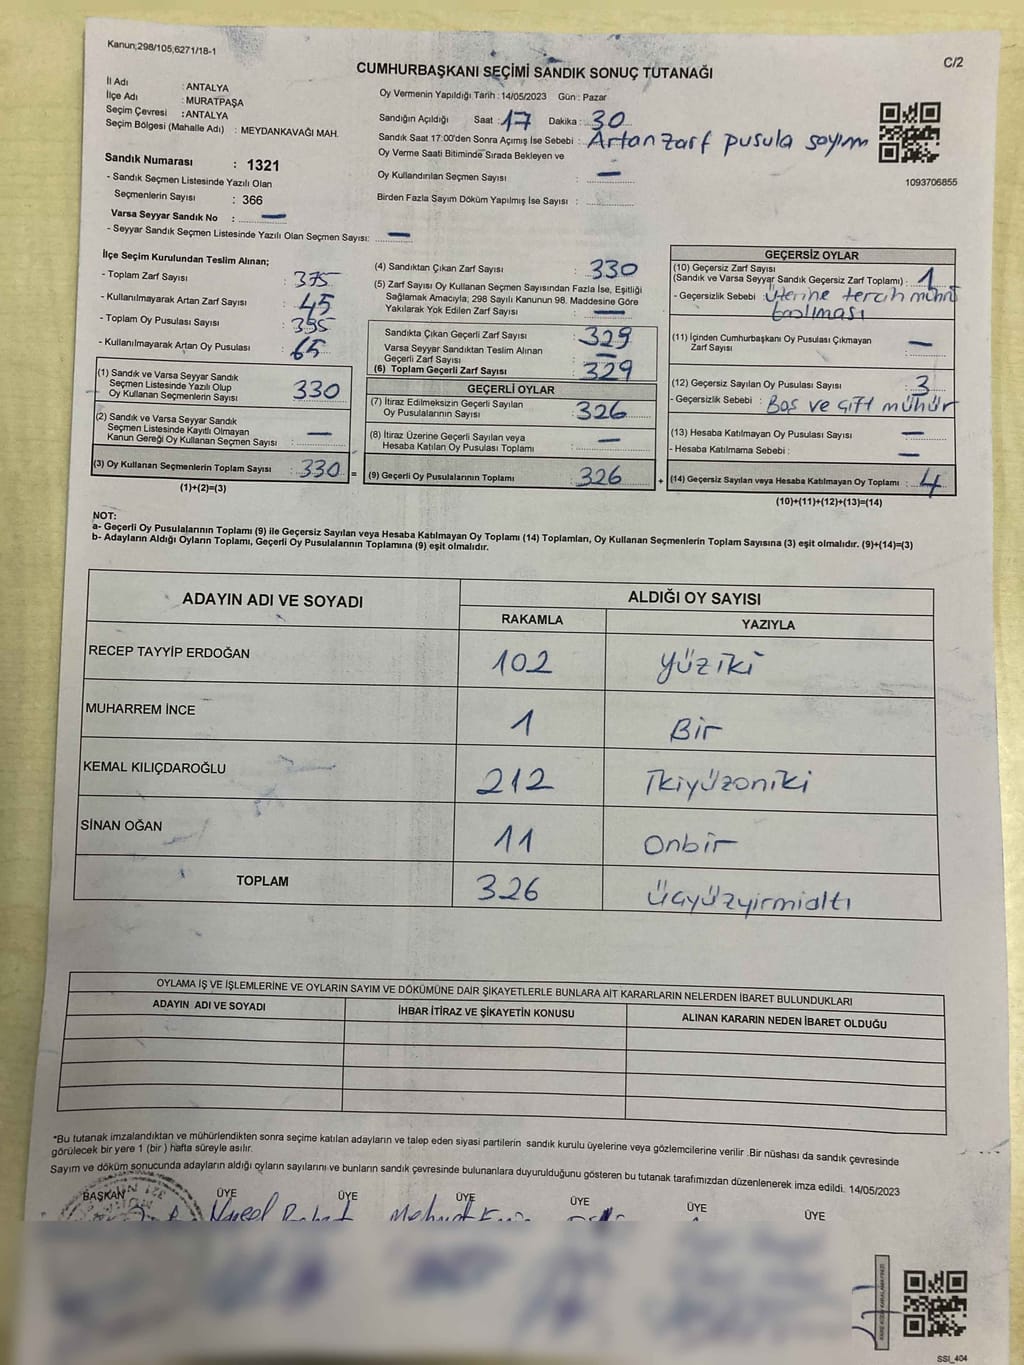 Kanun;298/105,6271/18-1
C/2
CUMHURBAŞKANI SEÇİMİ SANDIK SONUÇ TUTANAĞI
İl Adı : ANTALYA
İlçe Adı : MURATPAŞA
Seçim Çevresi : ANTALYA
Seçim Bölgesi (Mahalle Adı) : MEYDANKAVAĞI MAH.
Oy Vermenin Yapıldığı Tarih : 14/05/2023 Gün : Pazar
Sandığın Açıldığı Saat : 17 Dakika : 30
Sandık Saat 17:00'den Sonra Açımış İse Sebebi : Artan zarf pusula sayım
Oy Verme Saati Bitiminde Sırada Bekleyen ve
Oy Kullandırılan Seçmen Sayısı : —
Birden Fazla Sayım Döküm Yapılmış İse Sayısı :
1093706855
Sandık Numarası : 1321
- Sandık Seçmen Listesinde Yazılı Olan
Seçmenlerin Sayısı : 366
Varsa Seyyar Sandık No : —
- Seyyar Sandık Seçmen Listesinde Yazılı Olan Seçmen Sayısı: —
İlçe Seçim Kurulundan Teslim Alınan;
- Toplam Zarf Sayısı : 375
- Kullanılmayarak Artan Zarf Sayısı : 45
- Toplam Oy Pusulası Sayısı : 395
- Kullanılmayarak Artan Oy Pusulası : 65
(1) Sandık ve Varsa Seyyar Sandık
Seçmen Listesinde Yazılı Olup
Oy Kullanan Seçmenlerin Sayısı : 330
(2) Sandık ve Varsa Seyyar Sandık
Seçmen Listesinde Kayıtlı Olmayan
Kanun Gereği Oy Kullanan Seçmen Sayısı : —
(3) Oy Kullanan Seçmenlerin Toplam Sayısı : 330 =
(1)+(2)=(3)
(4) Sandıktan Çıkan Zarf Sayısı : 330
(5) Zarf Sayısı Oy Kullanan Seçmen Sayısından Fazla İse, Eşitliği
Sağlamak Amacıyla; 298 Sayılı Kanunun 98. Maddesine Göre
Yakılarak Yok Edilen Zarf Sayısı : —
Sandıkta Çıkan Geçerli Zarf Sayısı : 329
Varsa Seyyar Sandıktan Teslim Alınan
Geçerli Zarf Sayısı : —
(6) Toplam Geçerli Zarf Sayısı : 329
GEÇERLİ OYLAR
(7) İtiraz Edilmeksizin Geçerli Sayılan
Oy Pusulalarının Sayısı : 326
(8) İtiraz Üzerine Geçerli Sayılan veya
Hesaba Katılan Oy Pusulası Toplamı : —
(9) Geçerli Oy Pusulalarının Toplamı : 326 +
GEÇERSİZ OYLAR
(10) Geçersiz Zarf Sayısı
(Sandık ve Varsa Seyyar Sandık Geçersiz Zarf Toplamı) : 1
- Geçersizlik Sebebi : Üzerine tercih mührü
basılması
(11) İçinden Cumhurbaşkanı Oy Pusulası Çıkmayan
Zarf Sayısı : —
(12) Geçersiz Sayılan Oy Pusulası Sayısı : 3
- Geçersizlik Sebebi : Boş ve çift mühür
(13) Hesaba Katılmayan Oy Pusulası Sayısı : —
- Hesaba Katılmama Sebebi : —
(14) Geçersiz Sayılan veya Hesaba Katılmayan Oy Toplamı : 4
(10)+(11)+(12)+(13)=(14)
NOT:
a- Geçerli Oy Pusulalarının Toplamı (9) ile Geçersiz Sayılan veya Hesaba Katılmayan Oy Toplamı (14) Toplamları, Oy Kullanan Seçmenlerin Toplam Sayısına (3) eşit olmalıdır. (9)+(14)=(3)
b- Adayların Aldığı Oyların Toplamı, Geçerli Oy Pusulalarının Toplamına (9) eşit olmalıdır.
ADAYIN ADI VE SOYADI ALDIĞI OY SAYISI
RAKAMLA YAZIYLA
RECEP TAYYİP ERDOĞAN 102 Yüziki
MUHARREM İNCE 1 Bir
KEMAL KILIÇDAROĞLU 212 İkiyüzoniki
SİNAN OĞAN 11 Onbir
TOPLAM 326 Üçyüzyirmialtı
OYLAMA İŞ VE İŞLEMLERİNE VE OYLARIN SAYIM VE DÖKÜMÜNE DAİR ŞİKAYETLERLE BUNLARA AİT KARARLARIN NELERDEN İBARET BULUNDUKLARI
ADAYIN ADI VE SOYADI İHBAR İTİRAZ VE ŞİKAYETİN KONUSU ALINAN KARARIN NEDEN İBARET OLDUĞU
*Bu tutanak imzalandıktan ve mühürlendikten sonra seçime katılan adayların ve talep eden siyasi partilerin sandık kurulu üyelerine veya gözlemcilerine verilir .Bir nüshası da sandık çevresinde
görülecek bir yere 1 (bir ) hafta süreyle asılır.
Sayım ve döküm sonucunda adayların aldığı oyların sayılarını ve bunların sandık çevresinde bulunanlara duyurulduğunu gösteren bu tutanak tarafımızdan düzenlenerek imza edildi. 14/05/2023
BAŞKAN ÜYE ÜYE ÜYE ÜYE ÜYE ÜYE
SSİ_404